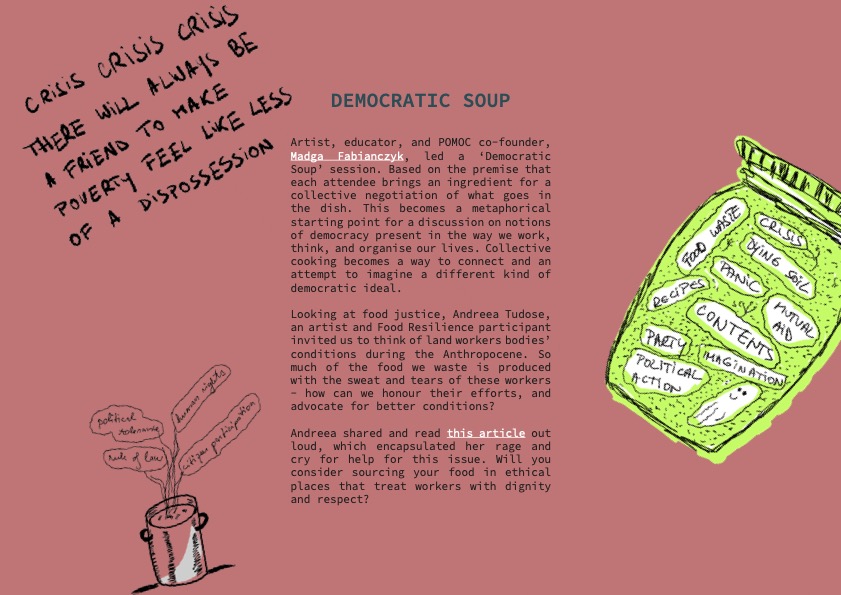 CRISIS CRISIS CRISIS
THERE WILL ALWAYS BE
A FRIEND TO MAKE
POVERTY FEEL LIKE LESS
OF A DISPOSSESSION
DEMOCRATIC SOUP
Artist, educator, and POMOC co-founder,
Madga Fabianczyk, led a ‘Democratic
Soup’ session. Based on the premise that
each attendee brings an ingredient for a
collective negotiation of what goes in
the dish. This becomes a metaphorical
starting point for a discussion on notions
of democracy present in the way we work,
think, and organise our lives. Collective
cooking becomes a way to connect and an
attempt to imagine a different kind of
democratic ideal.
Looking at food justice, Andreea Tudose,
an artist and Food Resilience participant
invited us to think of land workers bodies’
conditions during the Anthropocene. So
much of the food we waste is produced
with the sweat and tears of these workers
– how can we honour their efforts, and
advocate for better conditions?
Andreea shared and read this article out
loud, which encapsulated her rage and
cry for help for this issue. Will you
consider sourcing your food in ethical
places that treat workers with dignity
and respect?
political
tolerance
human rights
rule of law
citizen participation
FOOD WASTE
CRISIS
DYING SOIL
PANIC
RECIPES
MUTUAL
AID
CONTENTS
PARTY
IMAGINATION
POLITICAL
ACTION